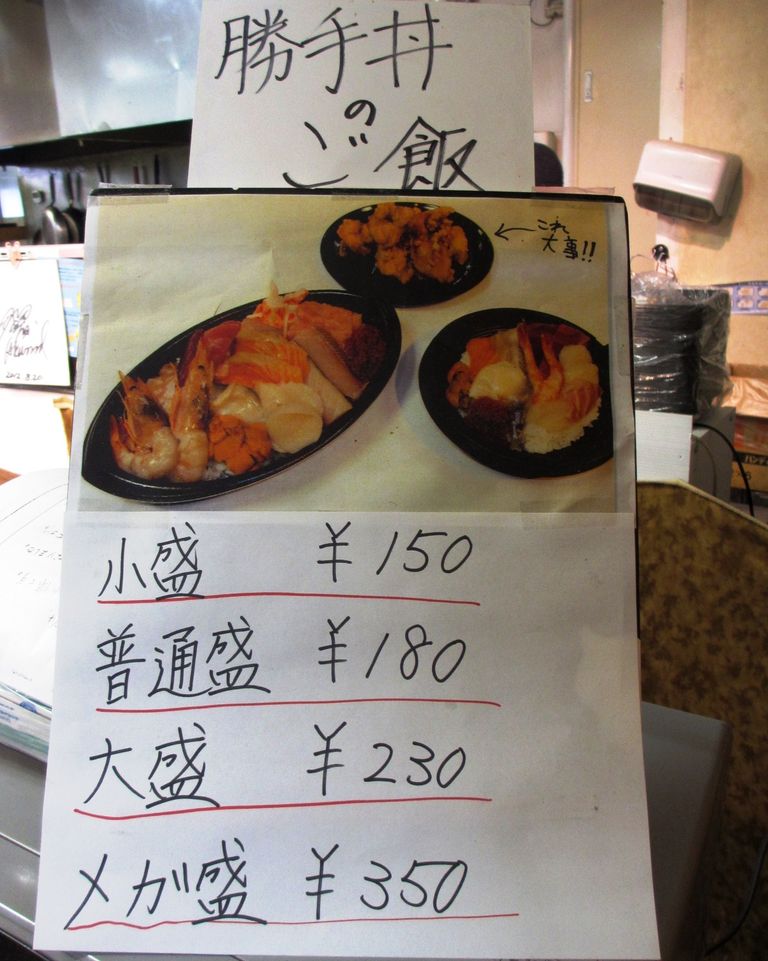 勝手丼
の
ご飯
これ
大事!!
小盛 ¥150
普通盛 ¥180
大盛 ¥230
メガ盛 ¥350